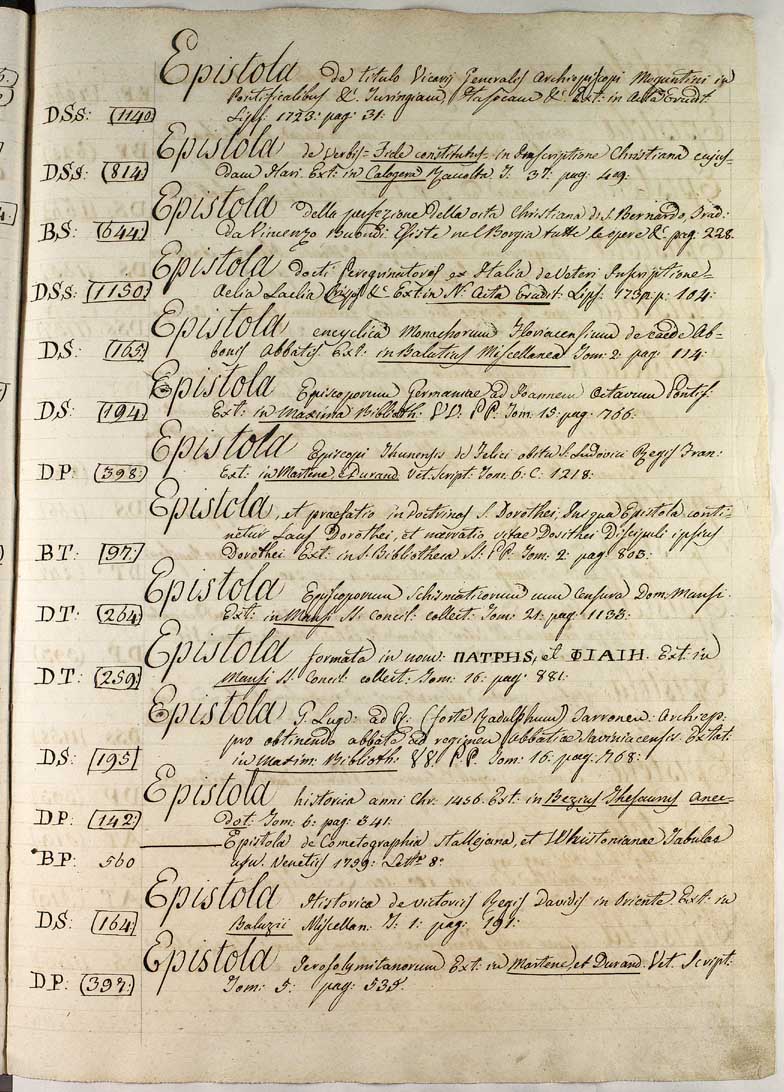 Epistola de titulo Vicarij Generalis Archiepiscopi Moguntini in
Pontificalibus &c. Turingiam, Hassocam &c. Ext: in Acta Erudit:
DSs: (1140) Lips: 1723: pag: 31:
Epistola de Verbis = Fide constitutus = in Inscriptione Christiana cujus=
DSs: (814) dam Ext: in Calogera Raccolta T. 37: pag: 409:
Epistola della perfezione della vita Christiana di S. Bernardo, Trad:
B,S: (644:) da Vincenzo Esiste nel Borgia tutte le opere &c. pag: 228.
Epistola docti Peregrinatoris ex Italia de Veteri Inscriptione=
DSs: (1150) Aelia Laelia Crispis &c. Ext: in N. Acta Erudit: Lips: 104:
Epistola encyclica Monachorum Floriacensium de caede Ab=
DS: (165) bonis Abbatis Ext: in Balutius Miscellanea Tom: 2: pag: 114:
Epistola Episcoporum Germaniae, ad Joannem Octavum Pontif:
DS: (194) Ext: in Maxima Biblioth: VV. PP: Tom: 15: pag: 766:
Epistola Episcopi Thunensis de Felici obitu S. Ludovici Regis Fran:
DP: (398:) Ext: in Martene, e Durand. Vet. Script: Tom: 6: C: 1218:
Epistola, et praefatio in doctrinas S. Dorothei, In qua Epistola conti=
netur Laus Dorothei, et narratio vitae Dosithei Discipuli ipsius
BT: (97:) Dorothei Ext: in S. Bibliotheca SS: PP: Tom: 2: pag: 803:
Epistola Episcoporum Schismaticorum cum Censura Dom: Mansi.
DT: (264) Ext: in Mansi SS. Concil: collect: Tom: 21: pag: 1133:
Epistola formata in nom: ΠΑΤΡΗS, et ΦΙΛΙΗ. Ext: in
DT: (259) Mansi SS. Concil: collect: Tom: 16: pag: 881:
Epistola G. Lugd: ad R: (forte Radulphum) Turronen: Archiep:
pro obtinendo abbate, ad regimen Abbatiae Saviniacensis. Extat:
DS: (195) in Maxim: Biblioth: VV. PP. Tom: 16: pag: 768:
Epistola historica anni Chr: 1456. Ext: in Bezius Thesaurus Anec=
DP: (142:) dot: Tom: 6: pag: 341:
Epistola de Cometographia Hallejana, et Whistonianae Tabulae
BP: 560 usu. Venetiis 1759: 8:
Epistola Historica de victoriis Regis Davidis in Oriente Ext: in
DS: (164:) Baluzii Miscellan: T: 1: pag: 191:
Epistola Jerosolymitanorum Ext: in Martene, et Durand. Vet. Script:
DP: (397:) Tom: 5: pag: 535: